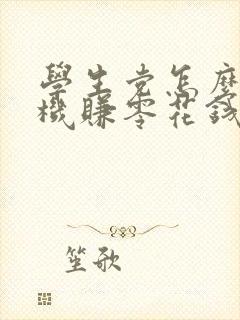 學生党怎麼
機賺零花錢
笙歌